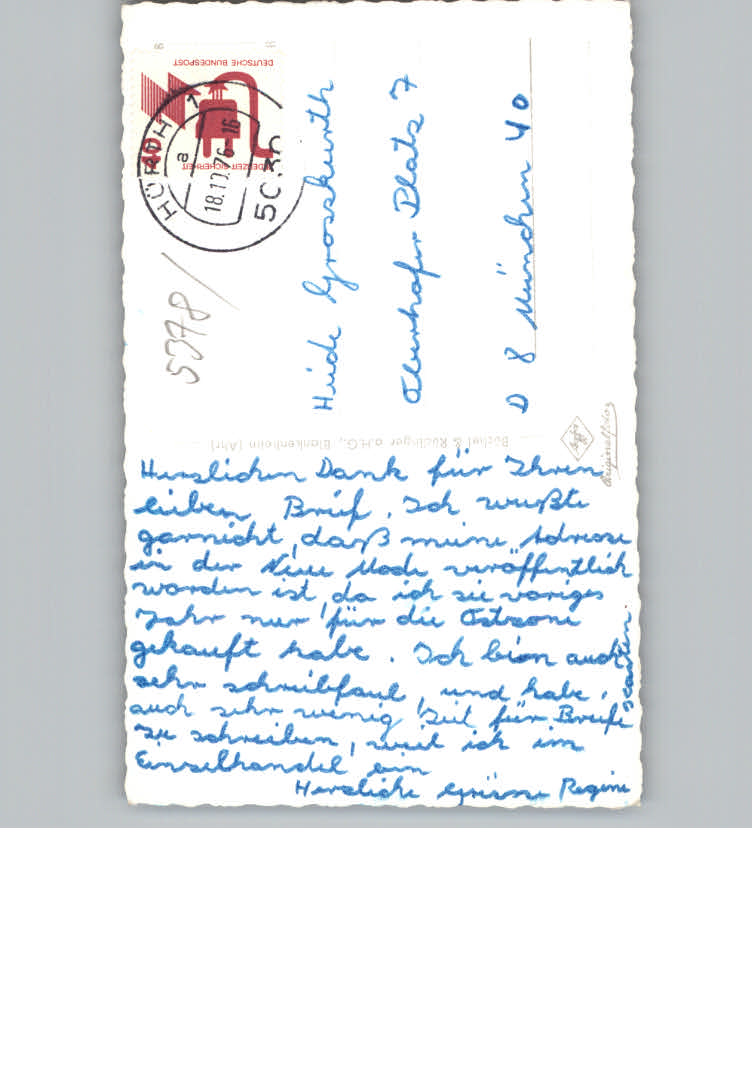 Herzlichen Dank für Ihren
lieben Brief. Ich wußte
garnicht, daß meine Adresse
in der Neue Mode veröffentlich
worden ist, da ich sie voriges
Jahr nur für die Ostzone
gekauft habe. Ich bin auch
sehr schreibfaul, und habe
auch sehr wenig Zeit für Briefe
zu schreiben, weil ich im
Einzelhandel bin
Herzliche Grüsse Regine
Heide Grosskurth
Oberhofer Platz 7
D 8 München 40
5378/
DEUTSCHE BUNDESPOST
JEDERZEIT SICHERHEIT
40
HÜRTH 1
a
18.10.76-16
5030
Büchel & Rüdinger o.H.G., Blankenheim (Ahr)
Agfa
Originalfoto